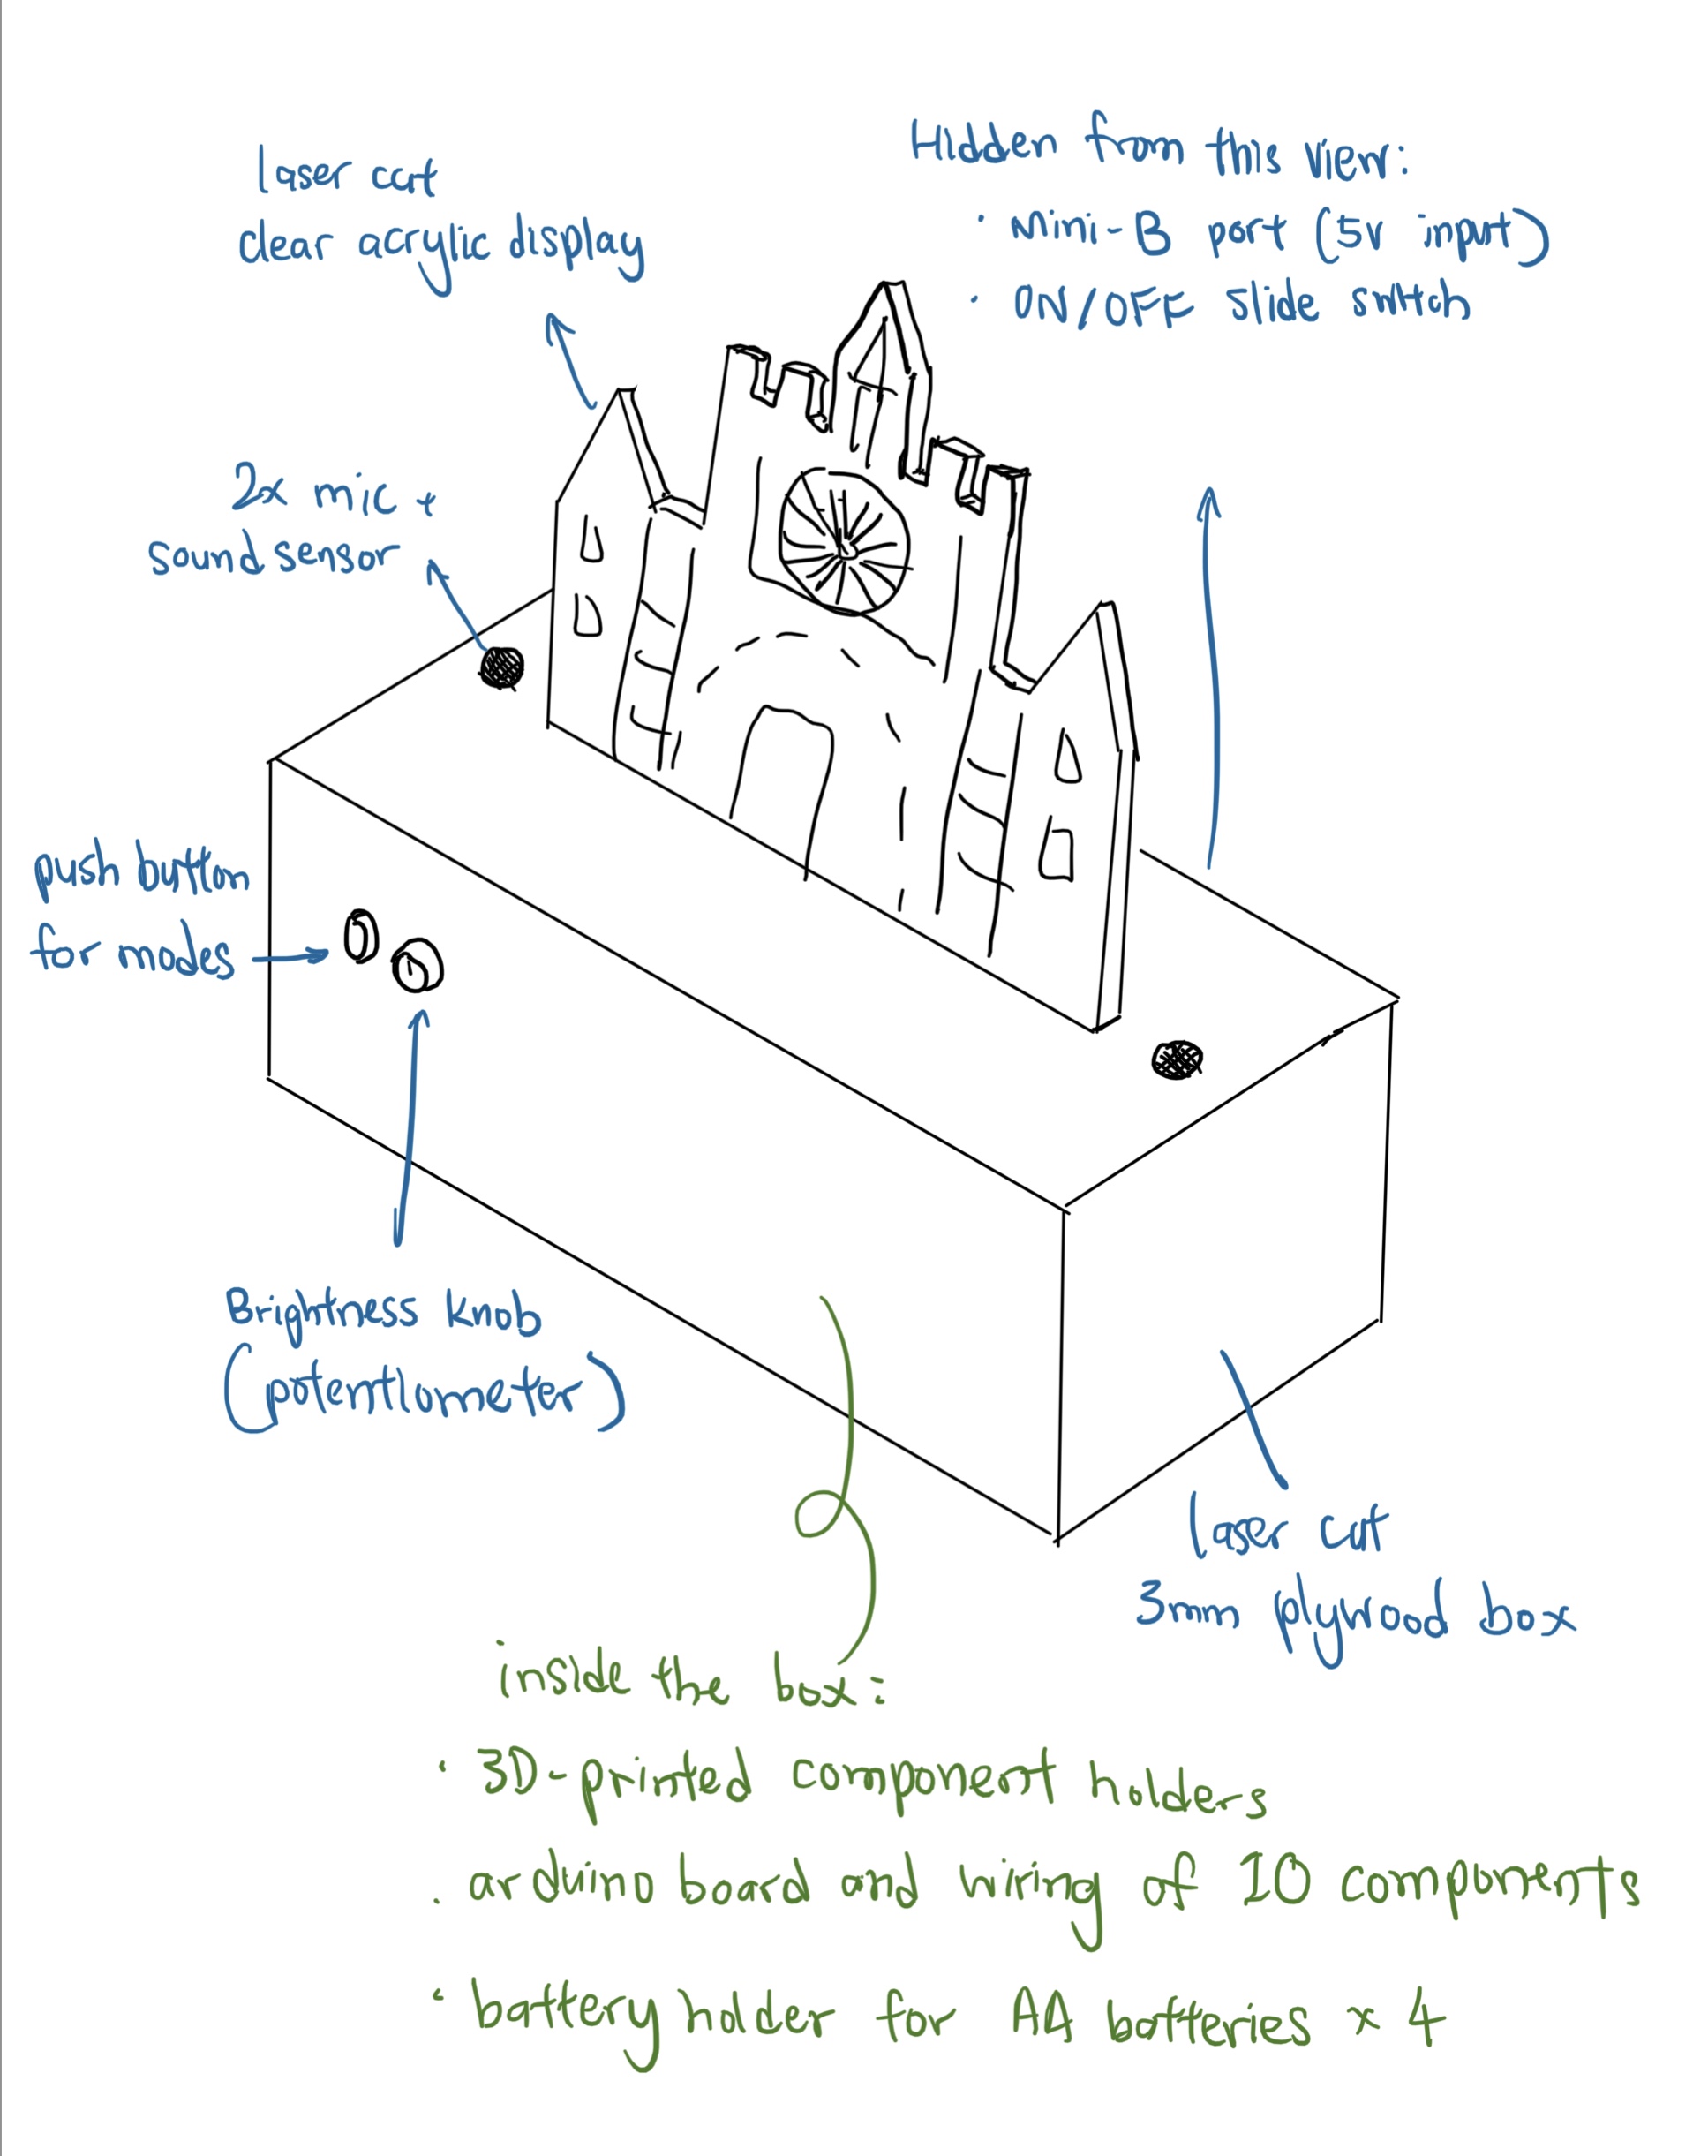 laser cut
clear acrylic display
Hidden from this view:
· Mini-B port (5V input)
· ON/OFF slide switch
2x mic +
sound sensor
push button
for modes
Brightness knob
(potentiometer)
laser cut
3mm plywood box
inside the box:
· 3D-printed component holders
· arduino board and wiring of IO components
· battery holder for AA batteries x 4